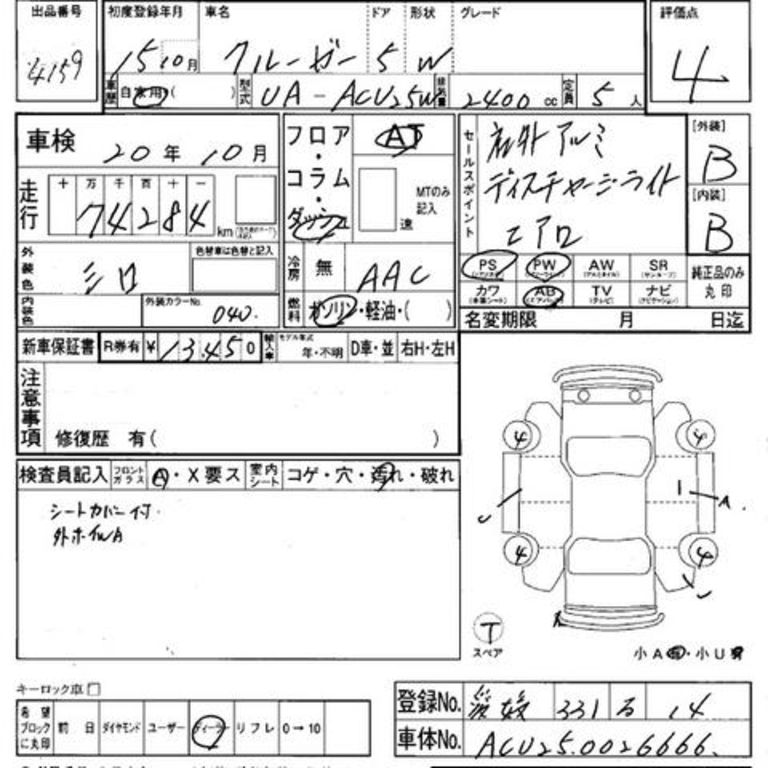 出品番号 初度登録年月 車名 ドア 形状 グレード 評価点
4159 15 10月 クルーガー 5 W 4
車歴 自家用( ) 型式 UA-ACU25W 排気量 2400 cc 定員 5 人
車検 20年 10月
フロア・コラム・ダッシュ AT
MTのみ記入 速
セールスポイント
社外アルミ
ディスチャージライト
エアロ
[外装] B
[内装] B
走行 十 万 千 百 十 一
74284 km
外装色 シロ 色替車は色替と記入
冷房 無 AAC
PS PW AW SR 純正品のみ丸印
カワ AB TV ナビ
内装色 外装カラーNo. 040.
燃料 ガソリン・軽油・( )
名変期限 月 日迄
新車保証書 R券有 ¥13,450 輸入車 モデル年式 年・不明 D車・並 右H・左H
注意事項
修復歴 有( )
検査員記入 フロントガラス A・X要ス 室内シート コゲ・穴・汚れ・破れ
シートカバー付.
外ホイルA
4 4
1 A.
4 4
T
スペア
小A・小U
キーロック車
希望ブロックに丸印 前日 ダイヤモンド ユーザー ディーラー リフレ 0→10
登録No. 愛媛 331 る 14
車体No. ACU25.0026666.